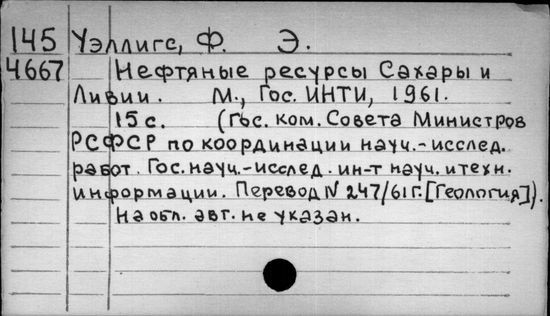 145 Уэллигс, Ф. Э.
4667 Нефтяные ресурсы Сахары и
Ливии. М., Гос. ИНТИ, 1961.
15 с. (Гос. ком. Совета Министров
РСФСР по координации науч.-исслед.
работ. Гос. науч.-исслед. ин-т науч. и техн.
информации. Перевод N 247/61г. [Геология]).
На обл. авт. не указан.